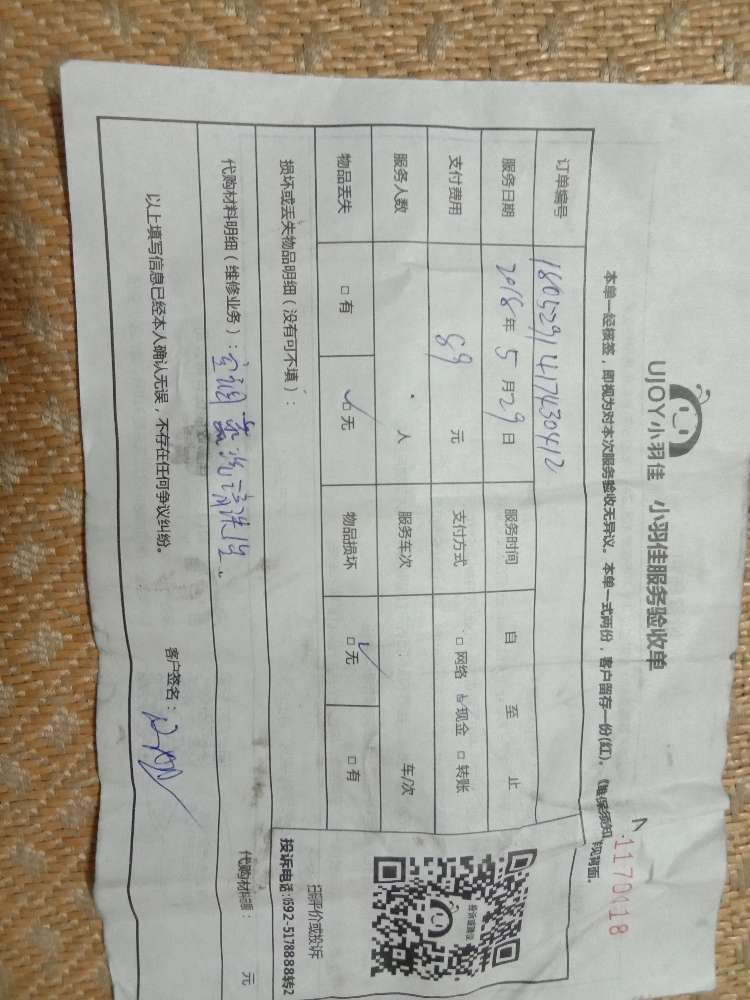 UJOY小羽佳 小羽佳服务验收单
本单一经接签，即视为对本次服务验收无异议。本单一式两份，客户留存一份(红)。《维保须知
见背面。
N
1170118
订单编号 1805291417430412
服务日期 2018年 5 月 29 日 服务时间 自 至 止
支付费用 89 元 支付方式 □ 网络 □ 现金 □ 转账
服务人数 人 服务车次 车/次
物品丢失 □ 有 ☑ 无 物品损坏 ☑ 无 □ 有
损坏或丢失物品明细（没有可不填）：
代购材料明细（维修业务）：空调 清洗
代购材料款： 元
以上填写信息已经本人确认无误，不存在任何争议纠纷。
客户签名：
扫码评价或投诉
投诉电话:0592-5178888转2